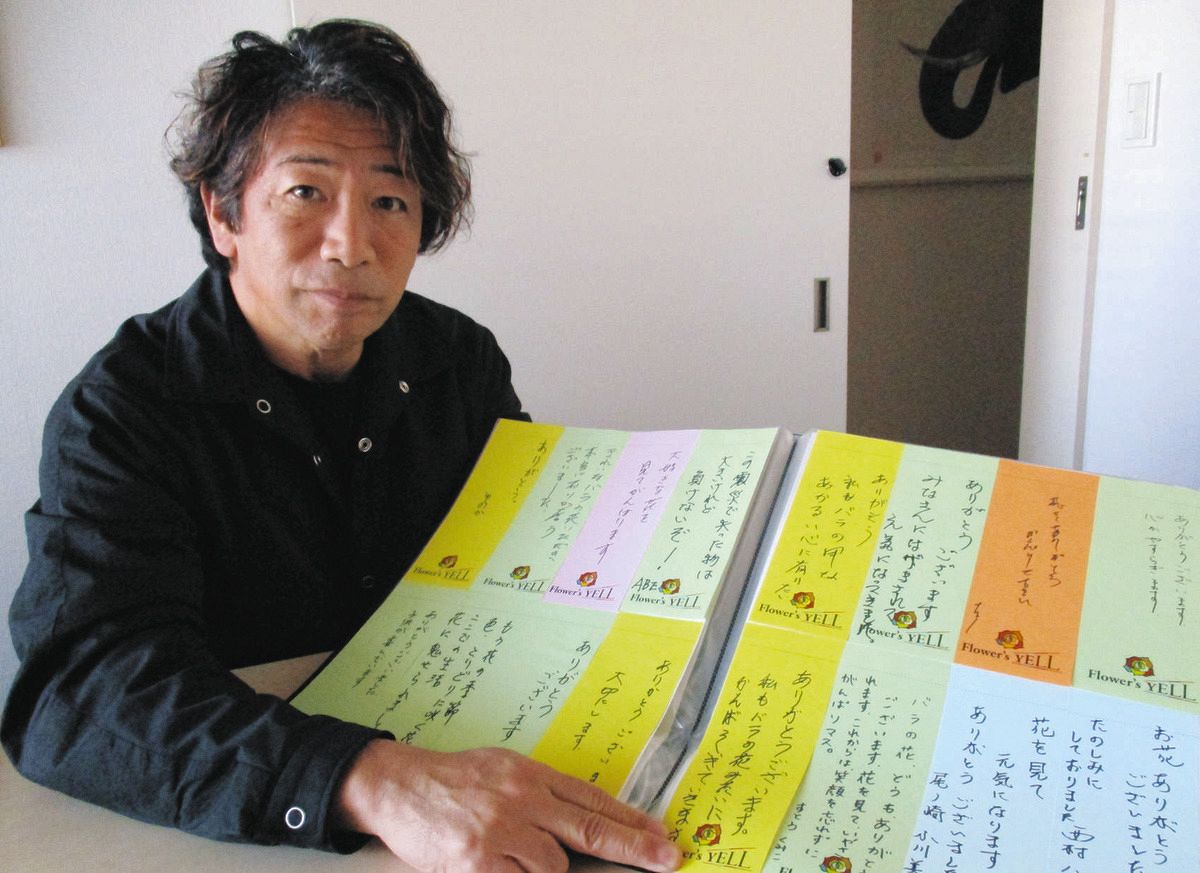 この震災で失った物は
大きいけれど
負けないぞ！
ABE
Flower's YELL
大好きな花を
見てがんばります
Flower's YELL
本当にありがとう
ございました
Flower's YELL
ありがとう
Flower's YELL
ありがとうござい
ありがとう
ございます
もう花の季節
色とりどりに咲く
ここでの生活
花に魅せられまし
ありがとうございました
ありがとうございます
心がやすらぎます
Flower's YELL
Flower's YELL
ありがとう
ございます
みなさんにはげまされて
元気になってきました。
Flower's YELL
ありがとう
私もバラの様な
あかるい心に有りたい
Flower's YELL
お花ありがとう
ございました
たのしみに
しておりました
西村
花を見て
元気になります
ありがとうございました
尾ノ崎 小川
バラの花、どうもありがとう
ございます。花を見ていやさ
れます。これからは笑顔を忘れずに
がんばリマス。
Flower's
ありがとうございます。
私もバラの花みたいに
がんばろ
Flower's YELL